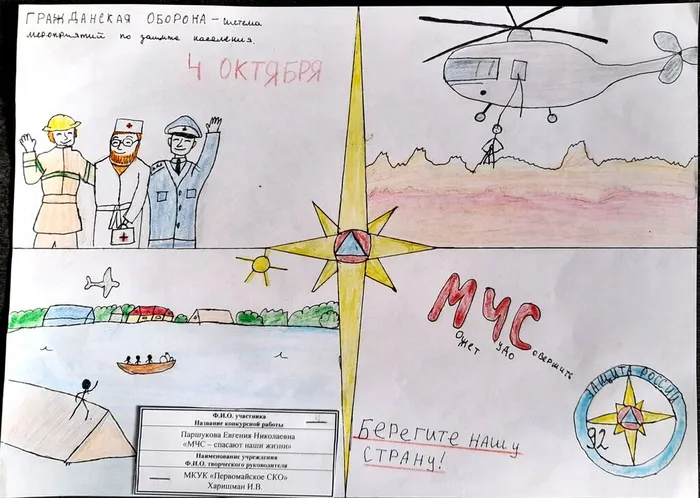 ГРАЖДАНСКАЯ ОБОРОНА – система
мероприятий по защите населения.
4 ОКТЯБРЯ
МЧС
ожет удо овершить
БЕРЕГИТЕ НАШУ
СТРАНУ!
ЗАЩИТА РОССИИ
92
Ф.И.О. участника
Название конкурсной работы
Паршукова Евгения Николаевна
«МЧС – спасают наши жизни»
Наименование учреждения
Ф.И.О. творческого руководителя
МКУК «Первомайское СКО»
Харишман И.В.